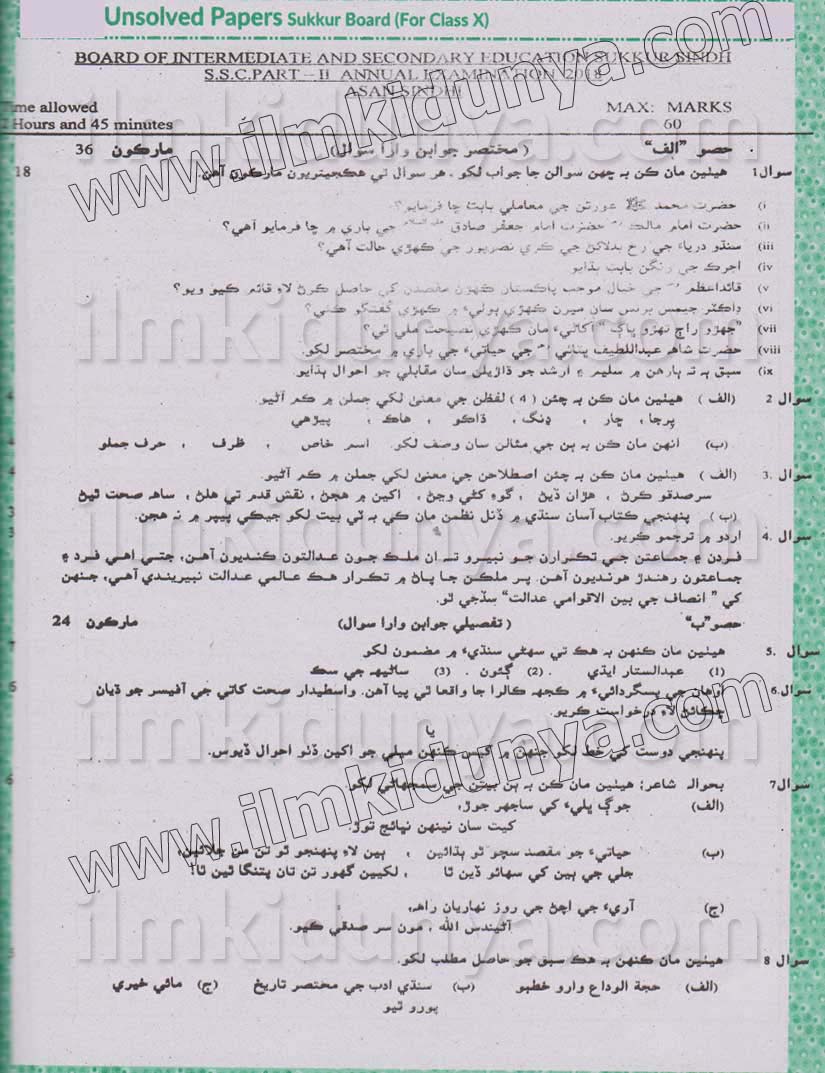 Unsolved Papers Sukkur Board (For Class X)
BOARD OF INTERMEDIATE AND SECONDARY EDUCATION SUKKUR SINDH
S.S.C.PART – II ANNUAL EXAMINATION 2018
ASAN SINDHI
Time allowed MAX: MARKS
2 Hours and 45 minutes 60
حصو ”الف“ (مختصر جوابن وارا سوال) مارڪون 36
سوال1 هيٺين مان ڪن بہ ڇهن سوالن جا جواب لکو. هر سوال تي هڪجيتريون مارڪون آهن. 18
i) حضرت محمد ﷺ عورتن جي معاملي بابت ڇا فرمايو؟
ii) حضرت امام مالڪ حضرت امام جعفر صادق جي باري ۾ ڇا فرمايو آهي؟
iii) سنڌو درياءَ جي رخ بدلائڻ جي ڪري نصرپور جي ڪهڙي حالت آهي؟
iv) اجرڪ جي رنگن بابت ٻڌايو
v) قائداعظم جي خيال موجب پاڪستان ڪهڙن مقصدن کي حاصل ڪرڻ لاءِ قائم ڪيو ويو؟
vi) ڊاڪٽر جيمس برنس سان ميرن ڪهڙي ٻوليءَ ۾ ڪهڙي گفتگو ڪئي؟
vii) ”جهڙو راڄ تهڙو ڀاڳ“ آکاڻيءَ مان ڪهڙي نصيحت ملي ٿي؟
viii) حضرت شاهہ عبداللطيف ڀٽائي جي حياتيءَ جي باري ۾ مختصر لکو.
ix) سبق ٻہ تہ ٻارهن ۾ سليم ۽ ارشد جو ڌاڙيلن سان مقابلي جو احوال ٻڌايو.
سوال 2 (الف) هيٺين مان ڪن بہ چئن (4) لفظن جي معنيٰ لکي جملن ۾ ڪم آڻيو. 4
پرچا، ڇار، ڍنگ، ڌاڪو، هاڪ، پيڙهي
(ب) انهن مان ڪن بہ ٻن جي مثالن سان وصف لکو. اسم خاص، ظرف، حرف جملو 4
سوال 3. (الف) هيٺين مان ڪن بہ چئن اصطلاحن جي معنيٰ لکي جملن ۾ ڪم آڻيو. 4
سرصدقو ڪرڻ، هڙان ڏيڻ، گوءِ کڻي وڃڻ، اکين ۾ هجڻ، نقش قدم تي هلڻ، ساهہ صحت ٿيڻ
(ب) پنهنجي ڪتاب آسان سنڌي ۾ ڏنل نظمن مان ڪي بہ ٽي بيت لکو جيڪي پيپر ۾ نہ هجن. 3
سوال 4. اردو ۾ ترجمو ڪريو. 3
فردن ۽ جماعتن جي تڪرارن جو نبيرو تہ ان ملڪ جون عدالتون ڪنديون آهن، جتي اهي فرد ۽
جماعتون رهندڙ هونديون آهن. پر ملڪن جا پاڻ ۾ تڪرار هڪ عالمي عدالت نبيريندي آهي، جنهن
کي ” انصاف جي بين الاقوامي عدالت“ سڏجي ٿو.
حصو”ب“ (تفصيلي جوابن وارا سوال) مارڪون 24
سوال 5. هيٺين مان ڪنهن بہ هڪ تي سهڻي سنڌيءَ ۾ مضمون لکو 7
(1) عبدالستار ايڌي. (2) ڳئون. (3) ساڻيهہ جي سڪ
سوال 6. اوهان جي پسگردائيءَ ۾ ڪجهہ ڪالرا جا واقعا ٿي پيا آهن. واسطيدار صحت کاتي جي آفيسر جو ڌيان 6
ڇڪائڻ لاءِ درخواست ڪريو.
يا
پنهنجي دوست کي خط لکو جنهن ۾ کيس ڪنهن ميلي جو اکين ڏٺو احوال ڏيوس.
سوال7 بحوالہ شاعر؛ هيٺين مان ڪن بہ ٻن بيتن جي سمجهاڻي لکو. 6
(الف) جوڳ ڀليءَ کي ساڄهر جوڙ،
کيت سان نينهن نڀائج توڙ.
(ب) حياتيءَ جو مقصد سچو ٿو ٻڌائين، ٻين لاءِ پنهنجو ٿو تن من جلائين،
جلي جي ٻين کي سهائو ڏين ٿا، لکيين گهور تن تان پتنگا ٿين ٿا!
(ج) آريءَ جي اچڻ جي روز نهاريان راهہ،
آڻيندس الله، مون سر صدقي ڪيو.
سوال 8 هيٺين مان ڪنهن بہ هڪ سبق جو حاصل مطلب لکو. 5
(الف) حجة الوداع وارو خطبو (ب) سنڌي ادب جي مختصر تاريخ (ج) مائي خيري
پورو ٿيو
www.ilmkidunya.com